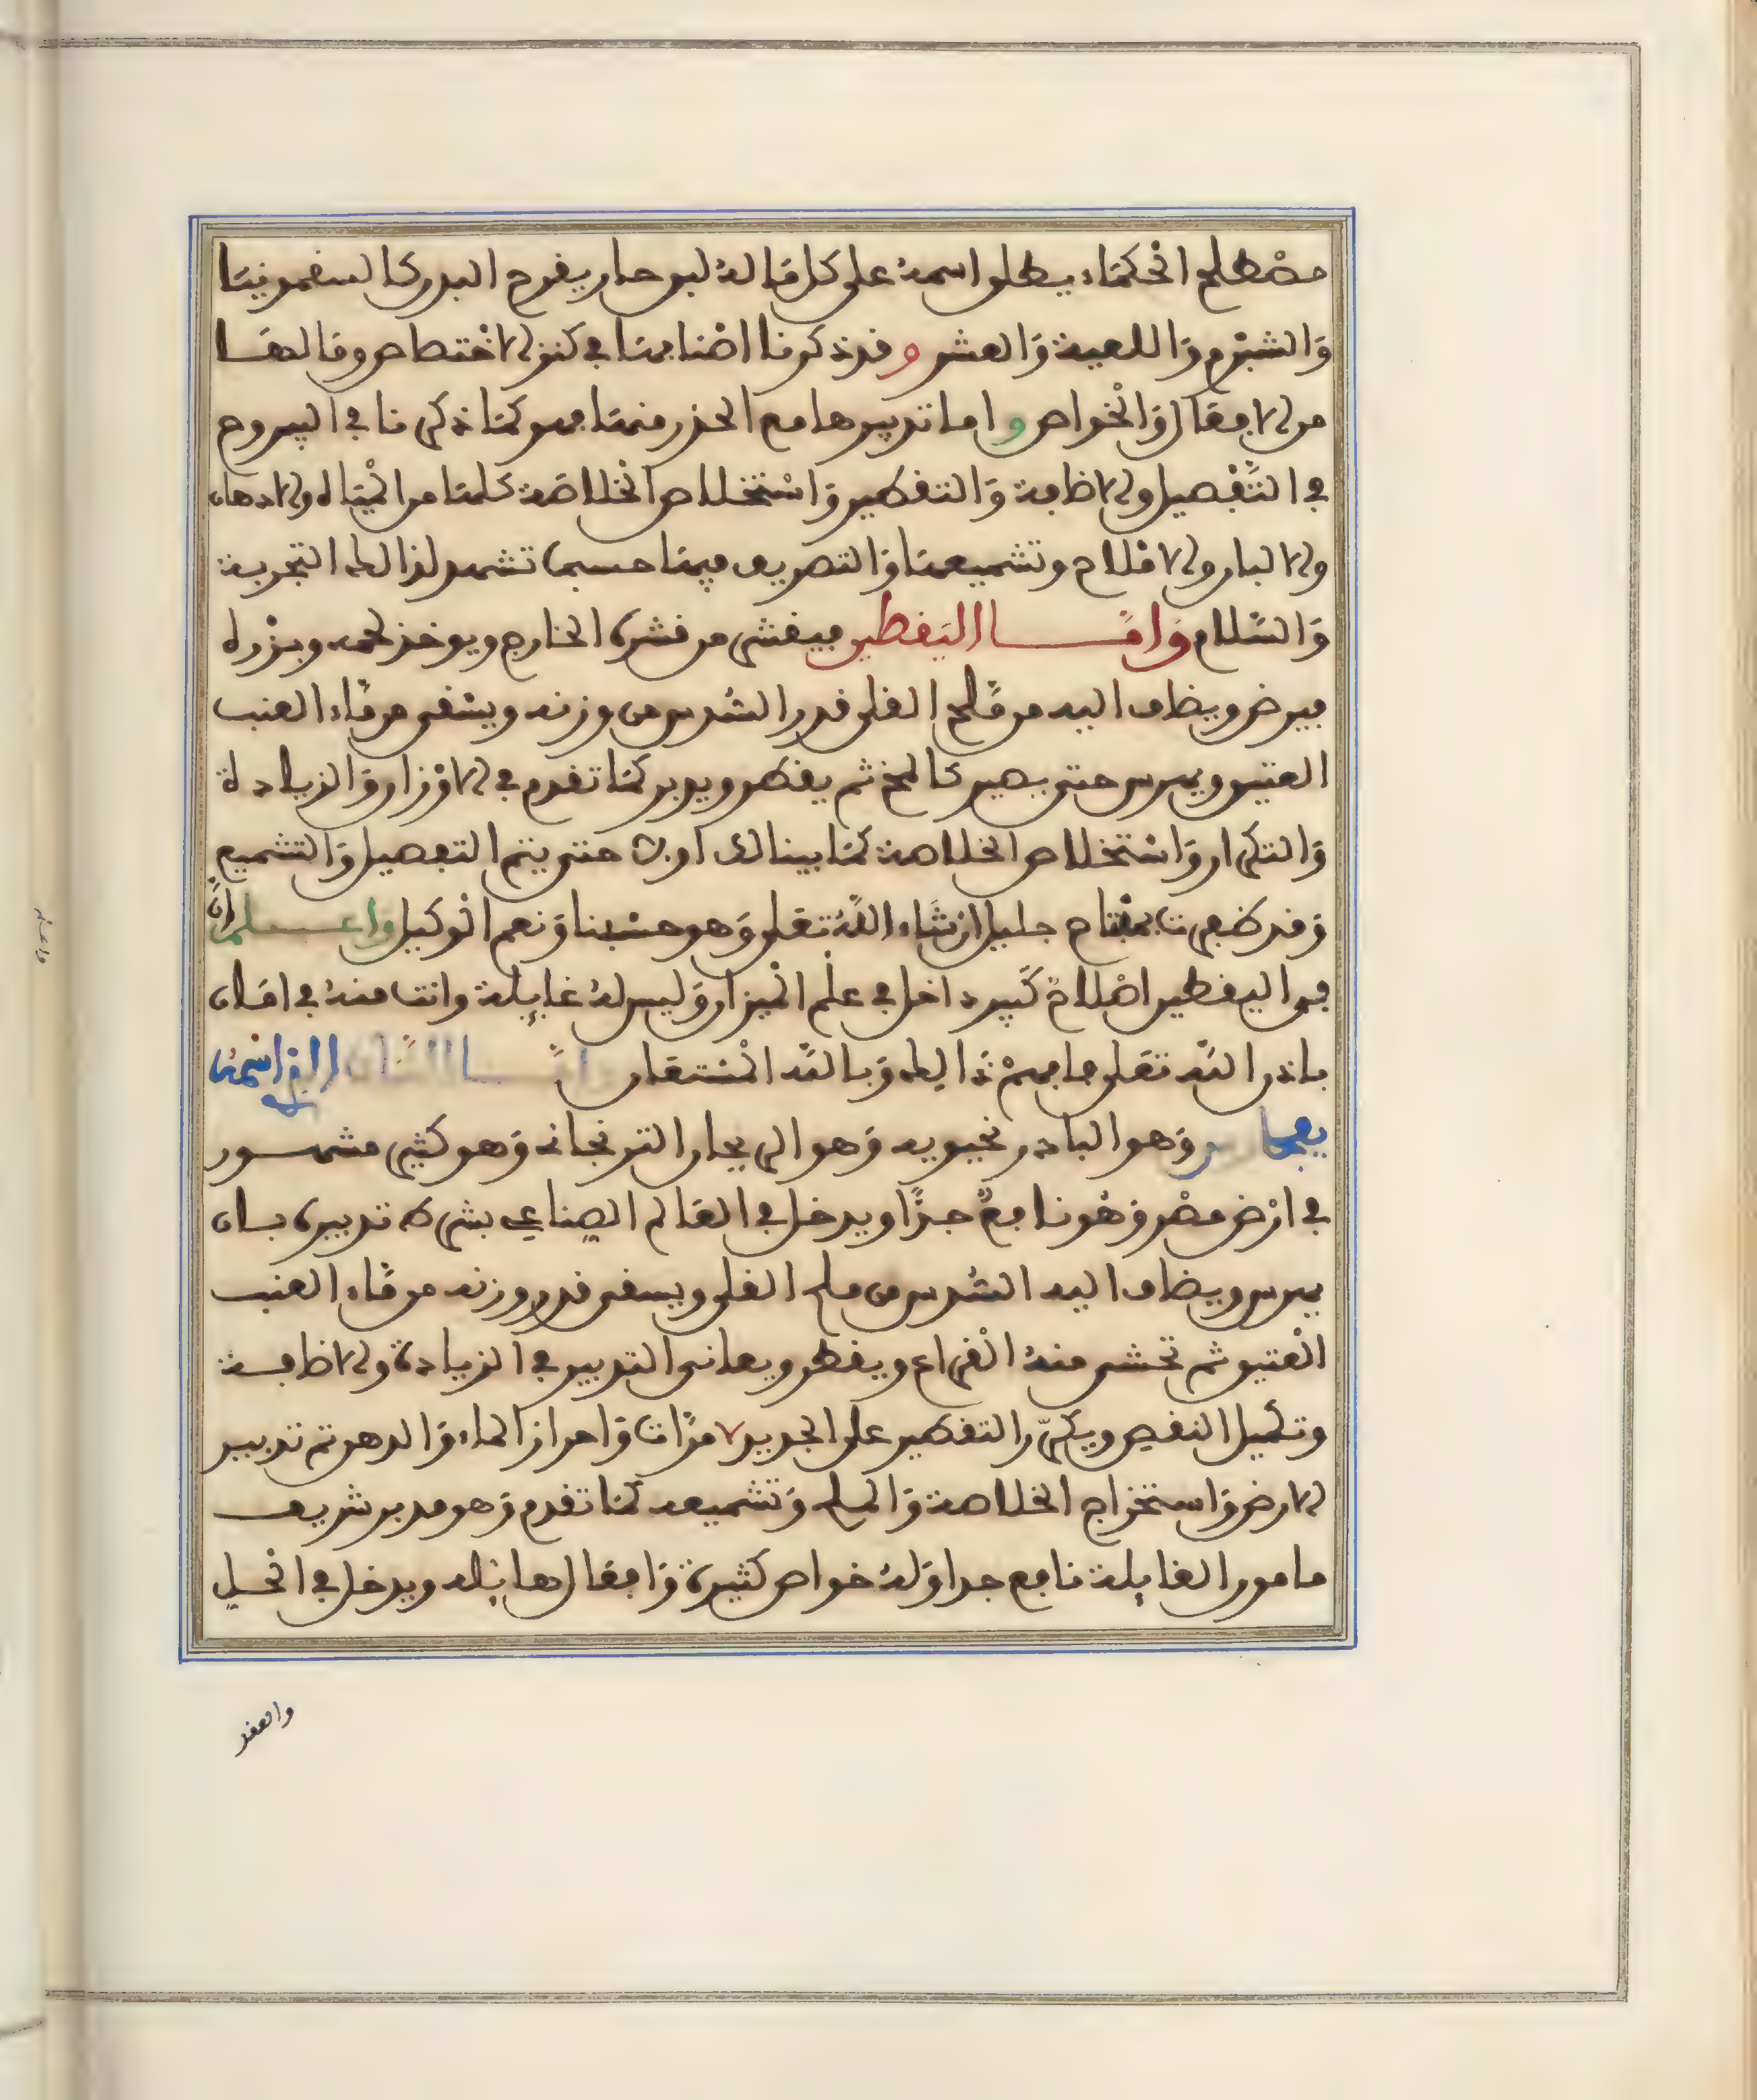 مصطلح الحكماء يطلق اسمه على كل ما له لبن حار يقرح البدن كالسقمونيا
والشبرم واللعبة والعشر وقد ذكرنا اصنافها في كنز الاختصاص وما لها
من الافعال والخواص واما تدبيرها مع الحذر منها فهو كما ذكرنا في اليبروح
في التفصيل والاضافة والتقطير واستخلاص الخلاصة كلها من المياه والادهان
والالبان والاملاح وتشميعها والتصريف فيها حسبما تشهد لذالك التجربة
والسلام واما اليقطين فيقشر من قشره الخارج ويوخذ لحمه وبزره
فيرض ويضاف اليه من ملح القلي قدر السدس من وزنه ويسقى من ماء العنب
العتيق ويهرس حتى يصير كالمخ ثم يقطر ويدبر كما تقدم في الاوزان والزيادة
والتكرار واستخلاص الخلاصة كما بينا لك اولا حتى يتم التفصيل والتشميع
وقد ظفرت بمفتاح جليل ان شاء الله تعلى وهو حسبنا ونعم الوكيل واعلم ان
في اليقطين اصلاح كبير داخل في علم الميزان وليس له غايلة وانت منه في امان
باذن الله تعلى فافهم ذالك وبالله المستعان واما النبات الذي اسمه
وهو البادرنجبويه وهو الريحان الترنجاني وهو كثير مشهور
في ارض مصر وهو نافع جدا ويدخل في العالم الصناعي بشرط تدبيره بان
يهرس ويضاف اليه السدس من ملح القلي ويسقى قدر وزنه من ماء العنب
العتيق ثم تحشى منه القراع ويقطر ويعانى التدبير في الزيادة والاضافة
وتكميل النقص ويكرر التقطير على الجديد ٧ مرات وافراز الماء والدهن ثم تدبير
الارض واستخراج الخلاصة والملح وتشميعه كما تقدم وهو مدبر شريف
مامون الغايلة نافع جدا وله خواص كثيرة وافعال هايلة ويدخل في الحل
والعقد